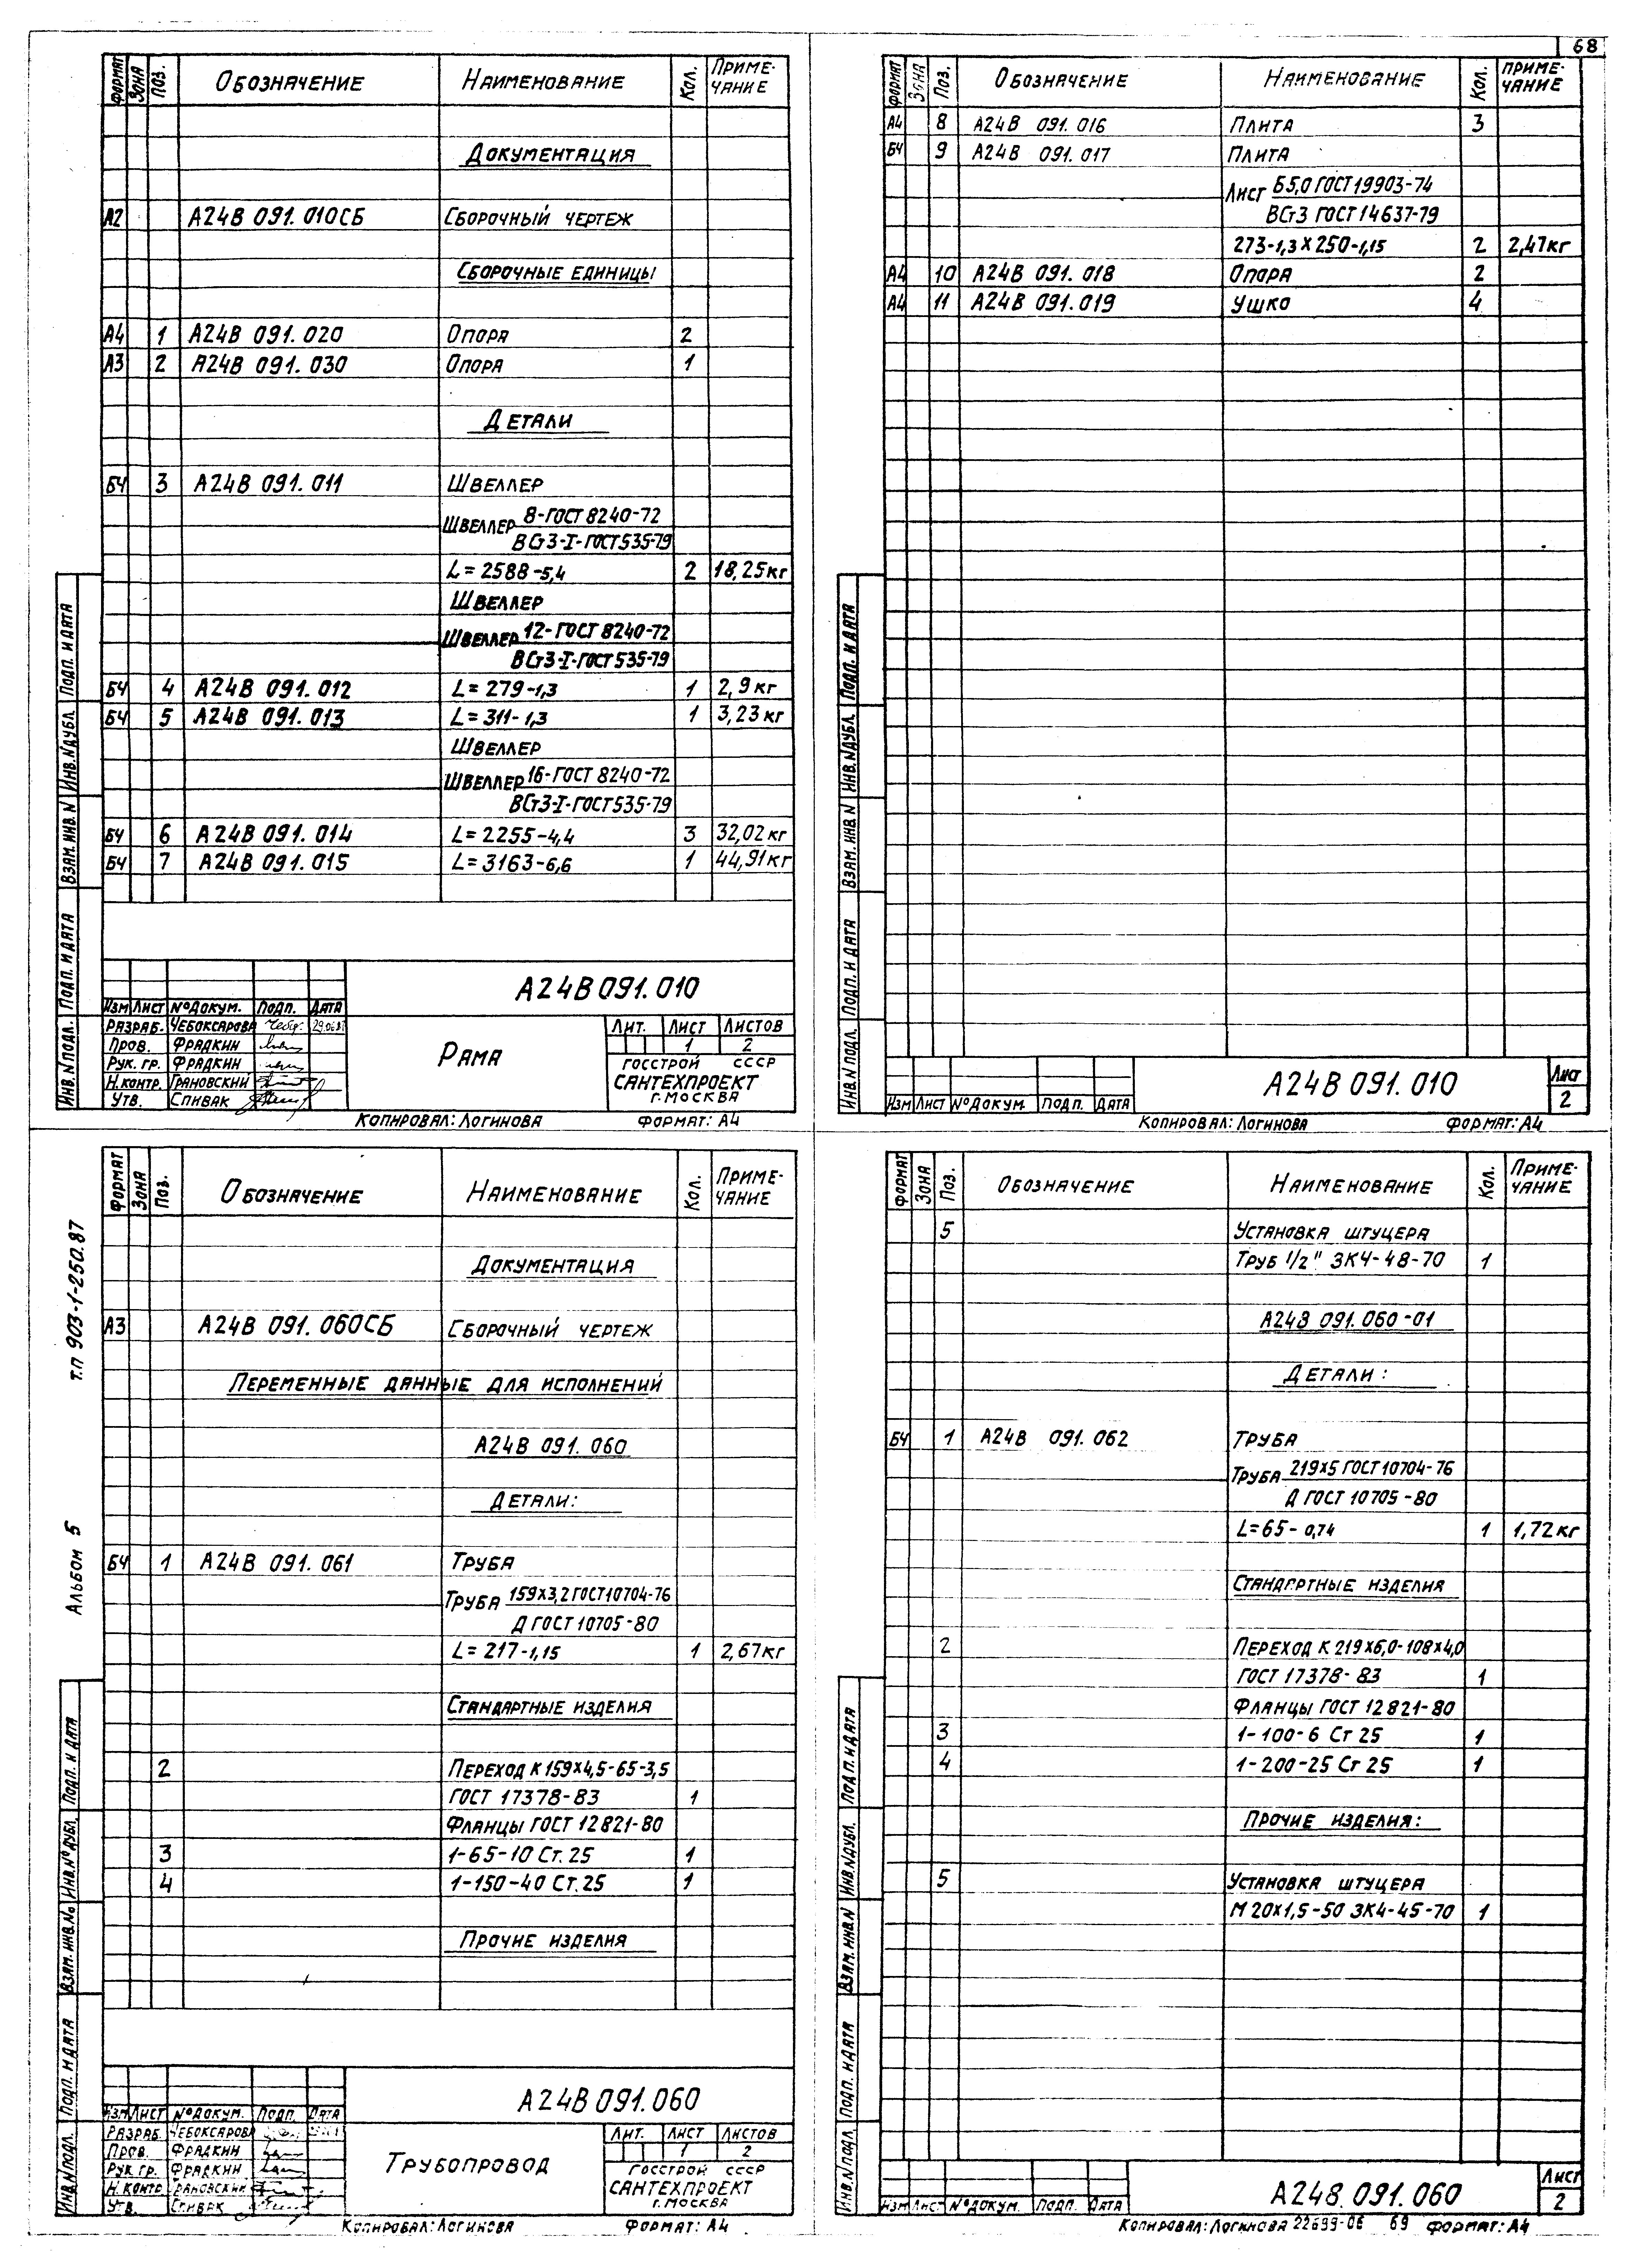 68
ФОРМАТ ЗОНА ПОЗ. ОБОЗНАЧЕНИЕ НАИМЕНОВАНИЕ КОЛ. ПРИМЕ-
ЧАНИЕ
ДОКУМЕНТАЦИЯ
А2 А24В 091.010СБ СБОРОЧНЫЙ ЧЕРТЕЖ
СБОРОЧНЫЕ ЕДИНИЦЫ
А4 1 А24В 091.020 ОПОРА 2
А3 2 А24В 091.030 ОПОРА 1
ДЕТАЛИ
БЧ 3 А24В 091.011 ШВЕЛЛЕР
ШВЕЛЛЕР 8-ГОСТ 8240-72
ВСт3-I-ГОСТ535-79
L=2588-5,4 2 18,25кг
ШВЕЛЛЕР
ШВЕЛЛЕР 12-ГОСТ 8240-72
ВСт3-I-ГОСТ535-79
БЧ 4 А24В 091.012 L=279-1,3 1 2,9кг
БЧ 5 А24В 091.013 L=311-1,3 1 3,23кг
ШВЕЛЛЕР
ШВЕЛЛЕР 16-ГОСТ 8240-72
ВСт3-I-ГОСТ535-79
БЧ 6 А24В 091.014 L=2255-4,4 3 32,02кг
БЧ 7 А24В 091.015 L=3163-6,6 1 44,91кг
ИНВ.N ПОДЛ. ПОДП. И ДАТА ВЗАМ.ИНВ.N ИНВ.N ДУБЛ. ПОДП. И ДАТА
А24В 091.010
ИЗМ ЛИСТ №ДОКУМ. ПОДП. ДАТА
РАЗРАБ. ЧЕБОКСАРОВА
ПРОВ. ФРАДКИН
РУК. ГР. ФРАДКИН
Н.КОНТР. ГРАНОВСКИЙ
УТВ. СПИВАК
РАМА
ЛИТ. ЛИСТ ЛИСТОВ
1 2
ГОССТРОЙ СССР
САНТЕХПРОЕКТ
Г.МОСКВА
КОПИРОВАЛ: ЛОГИНОВА ФОРМАТ: А4
ФОРМАТ ЗОНА ПОЗ. ОБОЗНАЧЕНИЕ НАИМЕНОВАНИЕ КОЛ. ПРИМЕ-
ЧАНИЕ
А4 8 А24В 091.016 ПЛИТА 3
БЧ 9 А24В 091.017 ПЛИТА
ЛИСТ Б5,0 ГОСТ 19903-74
ВСт3 ГОСТ 14637-79
273-1,3Х250-1,15 2 2,47кг
А4 10 А24В 091.018 ОПОРА 2
А4 11 А24В 091.019 УШКО 4
ИНВ.N ПОДЛ. ПОДП. И ДАТА ВЗАМ.ИНВ N ИНВ.N ДУБЛ. ПОДП. И ДАТА
ИЗМ ЛИСТ №ДОКУМ. ПОДП. ДАТА
А24В 091.010
ЛИСТ
2
КОПИРОВАЛ: ЛОГИНОВА ФОРМАТ: А4
Т.П 903-1-250.87
АЛЬБОМ 5
ФОРМАТ ЗОНА ПОЗ. ОБОЗНАЧЕНИЕ НАИМЕНОВАНИЕ КОЛ. ПРИМЕ-
ЧАНИЕ
ДОКУМЕНТАЦИЯ
А3 А24В 091.060СБ СБОРОЧНЫЙ ЧЕРТЕЖ
ПЕРЕМЕННЫЕ ДАННЫЕ ДЛЯ ИСПОЛНЕНИЙ
А24В 091.060
ДЕТАЛИ:
БЧ 1 А24В 091.061 ТРУБА
ТРУБА 159Х3,2 ГОСТ10704-76
Д ГОСТ 10705-80
L=217-1,15 1 2,67кг
СТАНДАРТНЫЕ ИЗДЕЛИЯ
2 ПЕРЕХОД К 159Х4,5-65-3,5
ГОСТ 17378-83 1
ФЛАНЦЫ ГОСТ 12821-80
3 1-65-10 Ст.25 1
4 1-150-40 Ст.25 1
ПРОЧИЕ ИЗДЕЛИЯ
ИНВ.N ПОДЛ. ПОДП. И ДАТА ВЗАМ.ИНВ.№ ИНВ.№ ДУБЛ. ПОДП. И ДАТА
А24В 091.060
ИЗМ ЛИСТ №ДОКУМ. ПОДП. ДАТА
РАЗРАБ. ЧЕБОКСАРОВА
ПРОВ. ФРАДКИН
РУК ГР. ФРАДКИН
Н.КОНТР. ГРАНОВСКИЙ
УТВ. СПИВАК
ТРУБОПРОВОД
ЛИТ. ЛИСТ ЛИСТОВ
1 2
ГОССТРОЙ СССР
САНТЕХПРОЕКТ
Г.МОСКВА
КОПИРОВАЛ: ЛОГИНОВА ФОРМАТ: А4
ФОРМАТ ЗОНА ПОЗ. ОБОЗНАЧЕНИЕ НАИМЕНОВАНИЕ КОЛ. ПРИМЕ-
ЧАНИЕ
5 УСТАНОВКА ШТУЦЕРА
ТРУБ 1/2" ЗК4-48-70 1
А24В 091.060-01
ДЕТАЛИ:
БЧ 1 А24В 091.062 ТРУБА
ТРУБА 219Х5 ГОСТ 10704-76
Д ГОСТ 10705-80
L=65-0,74 1 1,72кг
СТАНДАРТНЫЕ ИЗДЕЛИЯ
2 ПЕРЕХОД К 219Х6,0-108Х4,0
ГОСТ 17378-83 1
ФЛАНЦЫ ГОСТ 12821-80
3 1-100-6 Ст 25 1
4 1-200-25 Ст 25 1
ПРОЧИЕ ИЗДЕЛИЯ:
5 УСТАНОВКА ШТУЦЕРА
М 20Х1,5-50 ЗК4-45-70 1
ИНВ.N ПОДЛ. ПОДП. И ДАТА ВЗАМ.ИНВ.N ИНВ.N ДУБЛ. ПОДП. И ДАТА
ИЗМ ЛИСТ №ДОКУМ. ПОДП. ДАТА
А24В.091.060
ЛИСТ
2
КОПИРОВАЛ: ЛОГИНОВА 22699-06 69 ФОРМАТ: А4